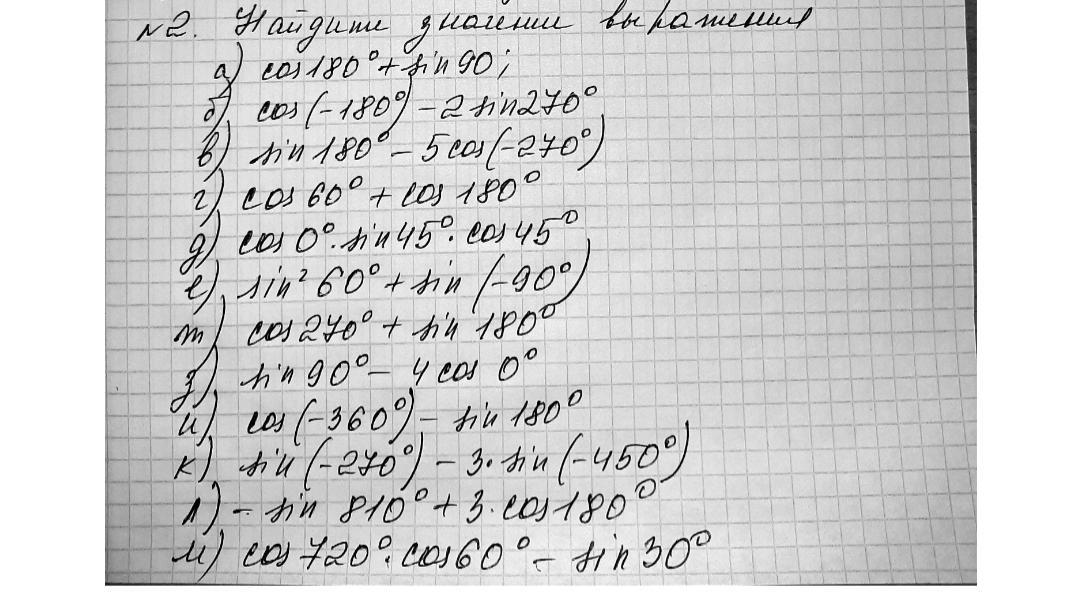 №2. Найдите значени выражения
а) cos180°+sin90;
б) cos(-180°)-2sin270°
в) sin180°-5cos(-270°)
г) cos60°+cos180°
д) cos0°·sin45°·cos45°
е) sin²60°+sin(-90°)
ж) cos270°+sin180°
з) sin90°-4cos0°
и) cos(-360°)-sin180°
к) sin(-270°)-3·sin(-450°)
л) -sin810°+3·cos180°
м) cos720°·cos60°-sin30°